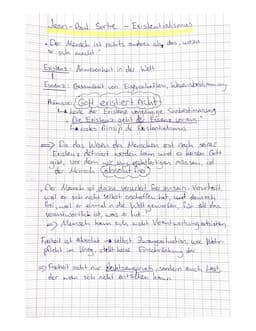 Jean-Paul Sartre - Existentialismus
"Der Mensch ist nichts anderes als das, wozu er sich macht."
Existenz: Anwesenheit in der Welt
Essenz: Gesamtheit von Eigenschaften, Wesensbestimmung
Prämisse: Gott existiert nicht
↳ keine der Existenz vorgängige Sinnbestimmung
"Die Existenz geht der Essenz voraus."
↳ erstes Prinzip des Existentialismus
⇒ Da das Wesen des Menschen erst nach seiner
Existenz definiert werden kann und es keinen Gott
gibt, vor dem wir uns rechtfertigen müssen, ist
der Mensch absolut frei
"Der Mensch ist dazu verurteilt frei zu sein. Verurteilt,
weil er sich nicht selbst erschaffen hat, und dennoch
frei, weil er, einmal in die Welt geworfen, für all das
verantwortlich ist, was er tut."
⇒ Menschen kann sich nicht Verantwortung entziehen
Freiheit ist absolut → selbst Zwangssituation, wie Wehr-
pflicht im Krieg, stellt keine Einschränkung dar
⇒ Freiheit nicht nur Rechtsanspruch, sondern auch Last,
der man sich nicht entziehen kann